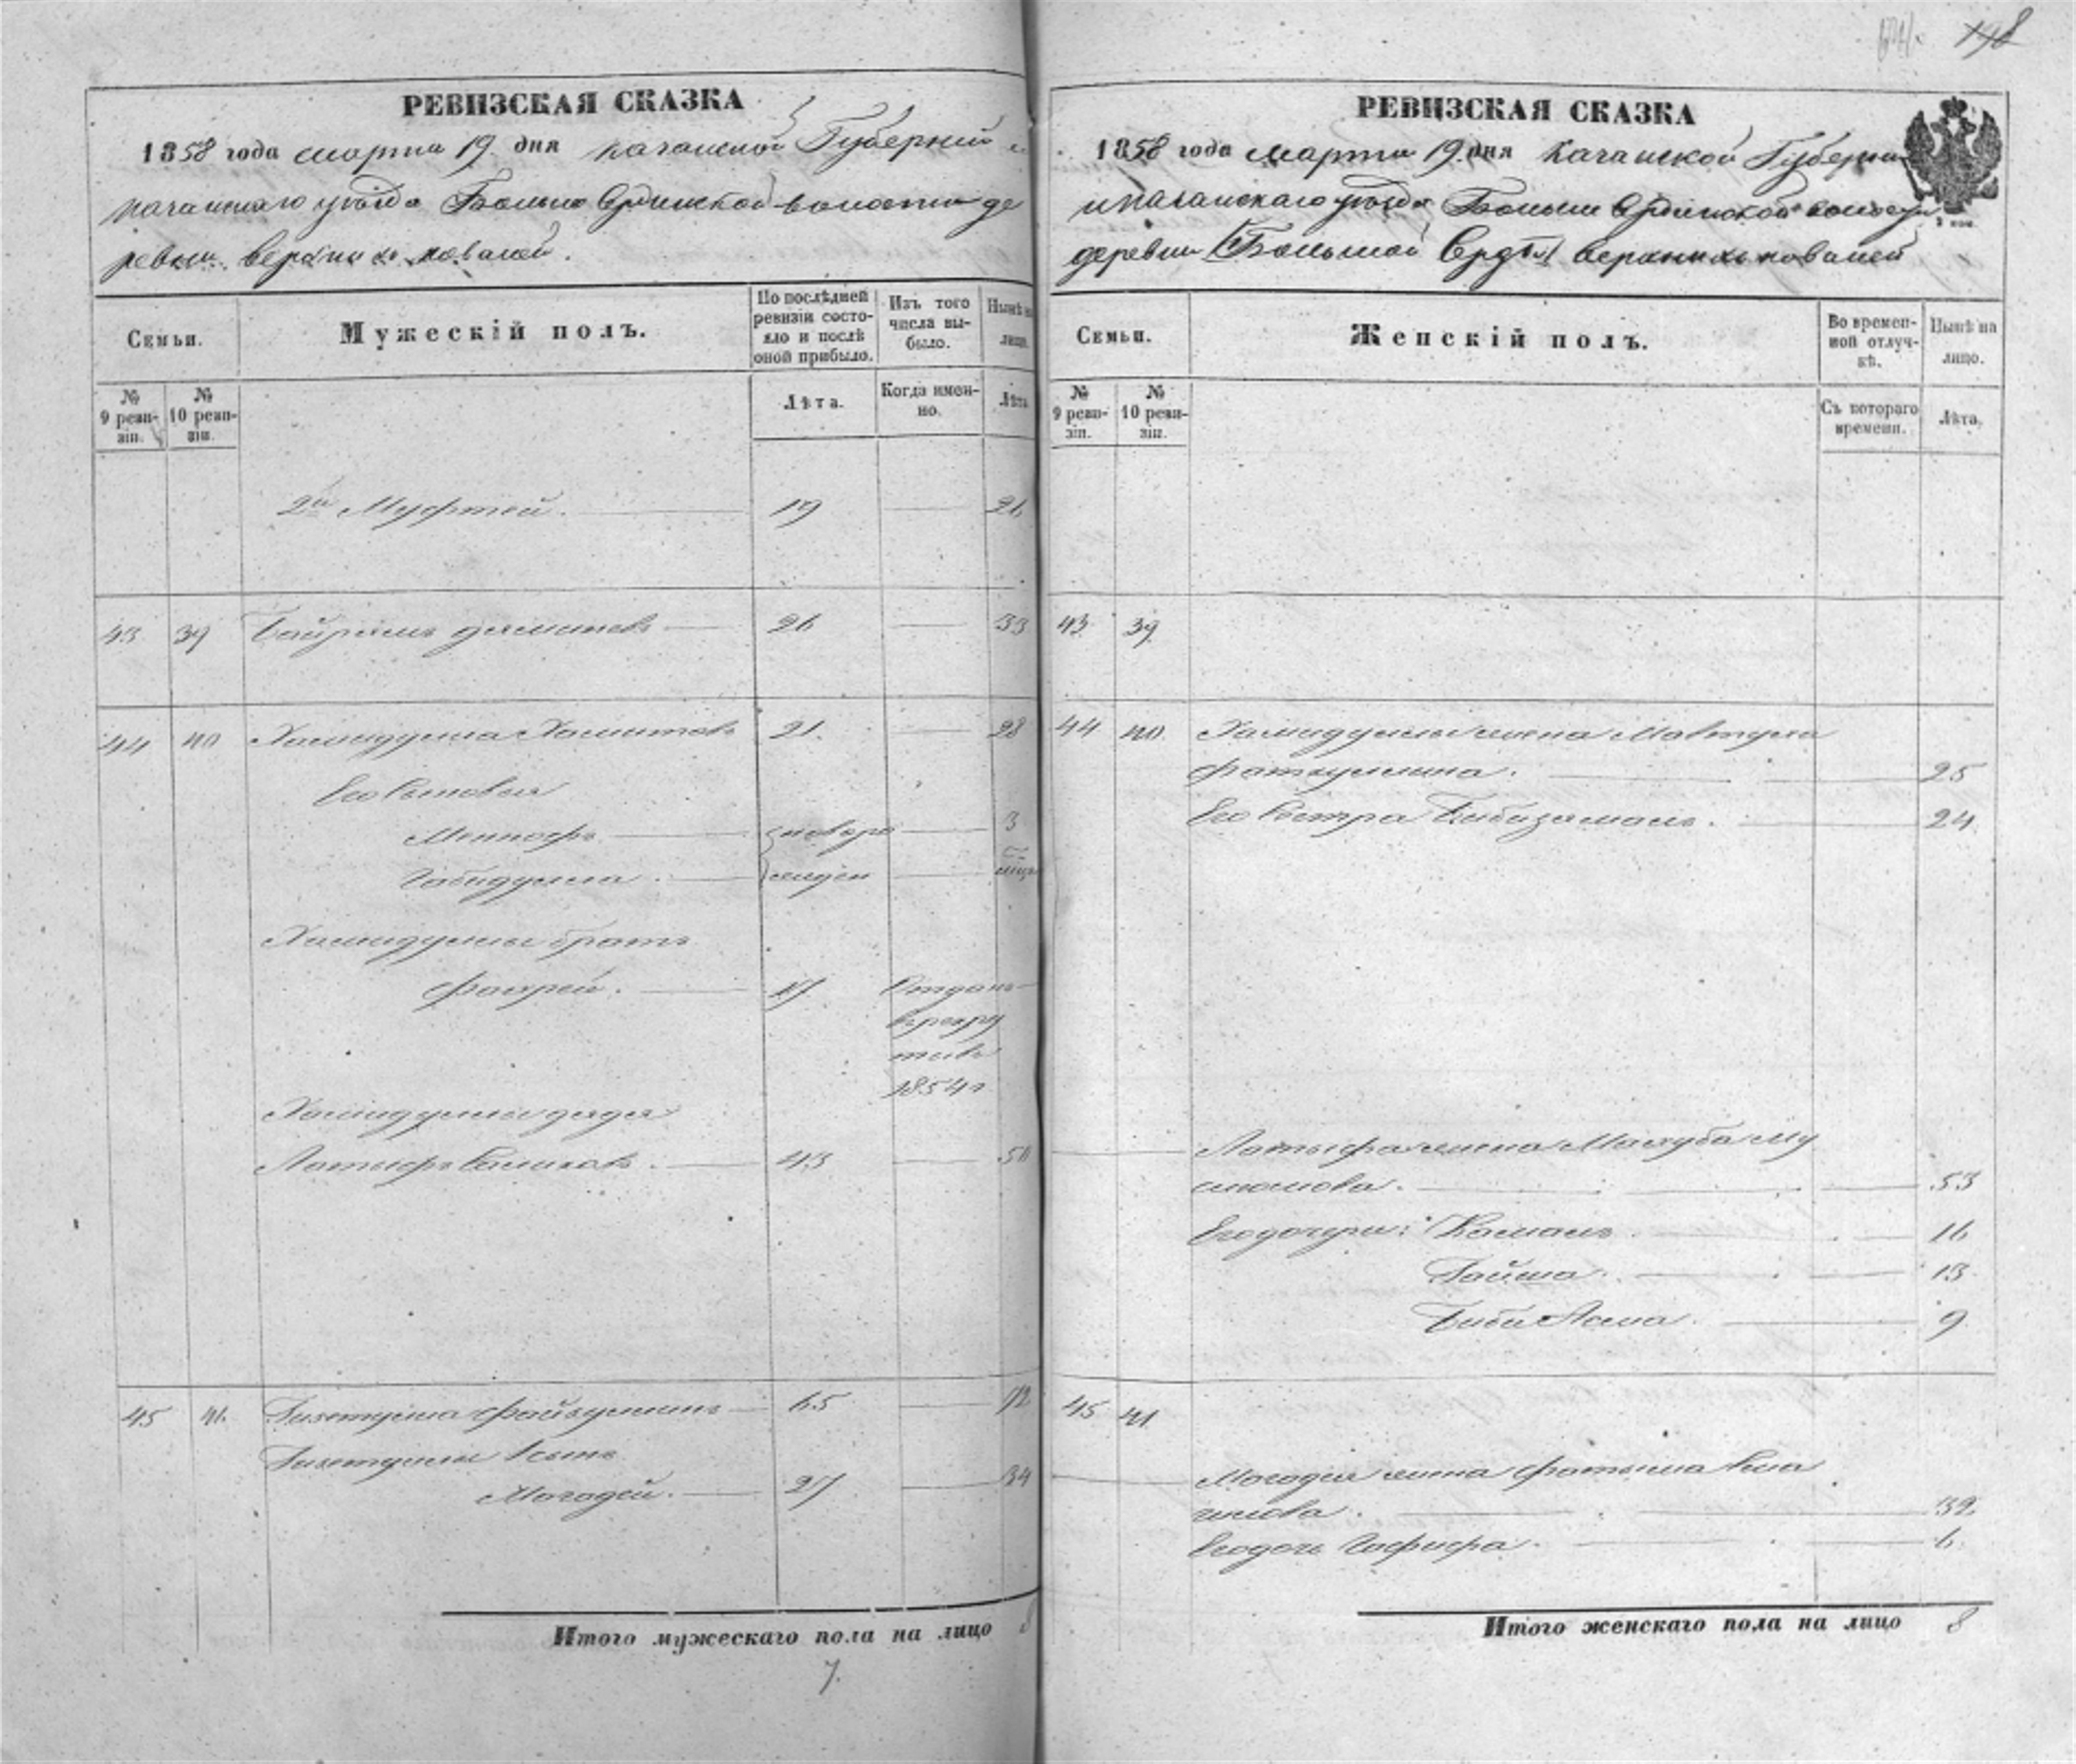 198
РЕВИЗСКАЯ СКАЗКА
1858 года марта 19 дня Казанской Губернии и
Казанскаго уѣзда Больше Ердинской волости де
ревни верхних ковалей.
Семьи.
Мужескій полъ.
По послѣдней ревизіи состояло и послѣ оной прибыло.
Изъ того числа выбыло.
Нынѣ на лицо.
№ 9 ревизіи.
№ 10 ревизіи.
Лѣта.
Когда именно.
Лѣта
2й Муфтей. 19 26
43 39 Байрямъ 26 33
44 40 Хамидулла Хамитовъ 21. 28
Его сыновья
новоро 3
Габидулла. жденъ
Хамидуллы братъ
Фахрей. 17 Отданъ
в рекру
ты въ
1854 г
Хамидуллы дядя
Латыфъ 43 50
45 41. Зизетулла Файзуллинъ 65 72
Зизетуллы сынъ
Магадей. 27 34
Итого мужескаго пола на лицо 8
7.
РЕВИЗСКАЯ СКАЗКА
1858 года марта 19 дня Казанской Губернии
и Казанскаго уѣзда Больше Ердинской волости
деревни (Большой Ерды) верхних ковалей
Семьи.
Женскій полъ.
Во временной отлучкѣ.
Нынѣ на лицо.
№ 9 ревизіи.
№ 10 ревизіи.
Съ котораго времени.
Лѣта.
43 39
44 40 Хамидуллы жена
Фаткуллина. 25
Его сестра Бибизямалъ. 24
Латыфа жена Махуба Му
53
Его дочери: Камалъ 16
Гайша. 13
Биби Асма. 9
45 41
Магадея жена Фатыма
32
Его дочь Гафифа. 6
Итого женскаго пола на лицо 8